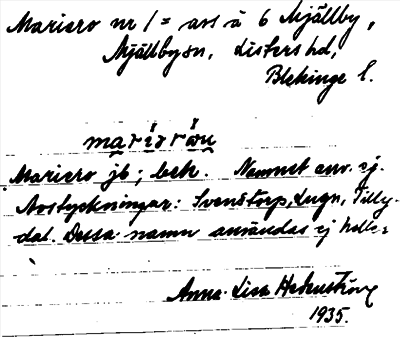 Mariero nr 1 = avs à 6 Mjällby,
Mjällby sn, Listers hd,
Blekinge l.
Mariero jb; bek. Namnet anv. ej.
Avstyckningar: Svenstorp, Lugn, Tilly-
dal. Dessa namn användas ej heller
Anna-Lisa
1935.